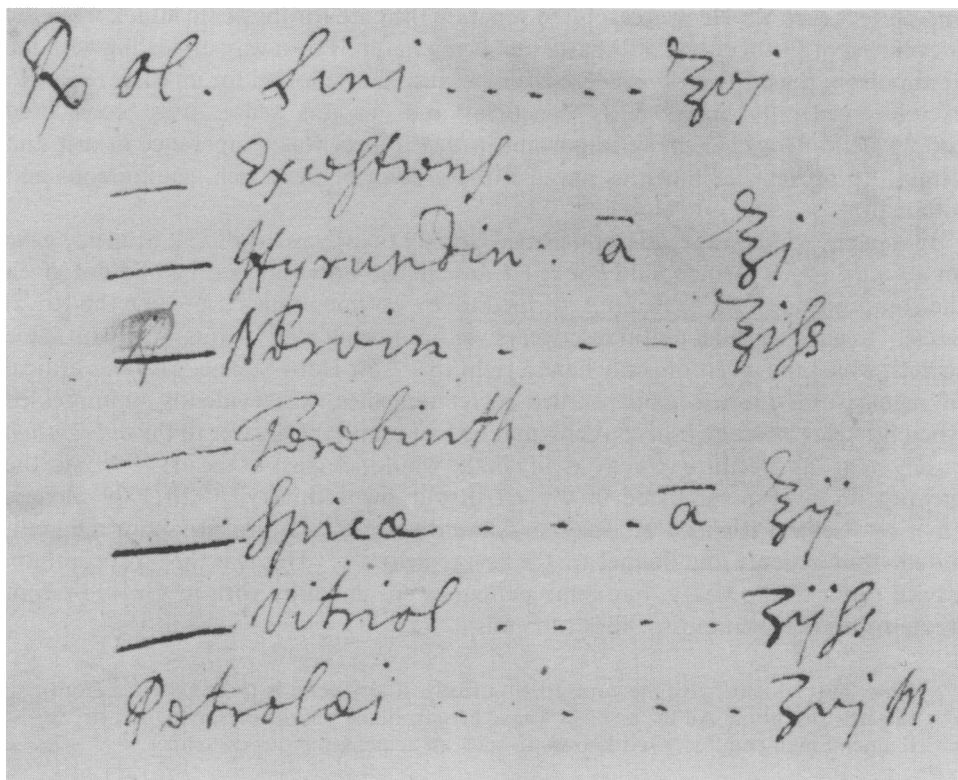 ℞ Ol. Lini ..... ʒvj
— Excestrens.
— Hyrundin: ā ʒj
— Nervin - - - - ʒiſs
— Terebinth.
— Spicæ - - - . ā ʒij
— Vitriol . . . . ʒijſs
Petrolæi - - - - - - ʒvj M.